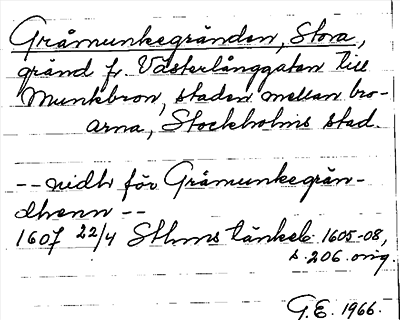 Gråmunkegränden, Stora,
gränd fr. Västerlånggatan till
Munkbron, staden mellan bro-
arna, Stockholms stad.
-- nidh för Gråmunkegrän-
dhenn --
1607 22/4 Sthms tänkeb. 1605-08,
s. 206. orig.
G.E. 1966.